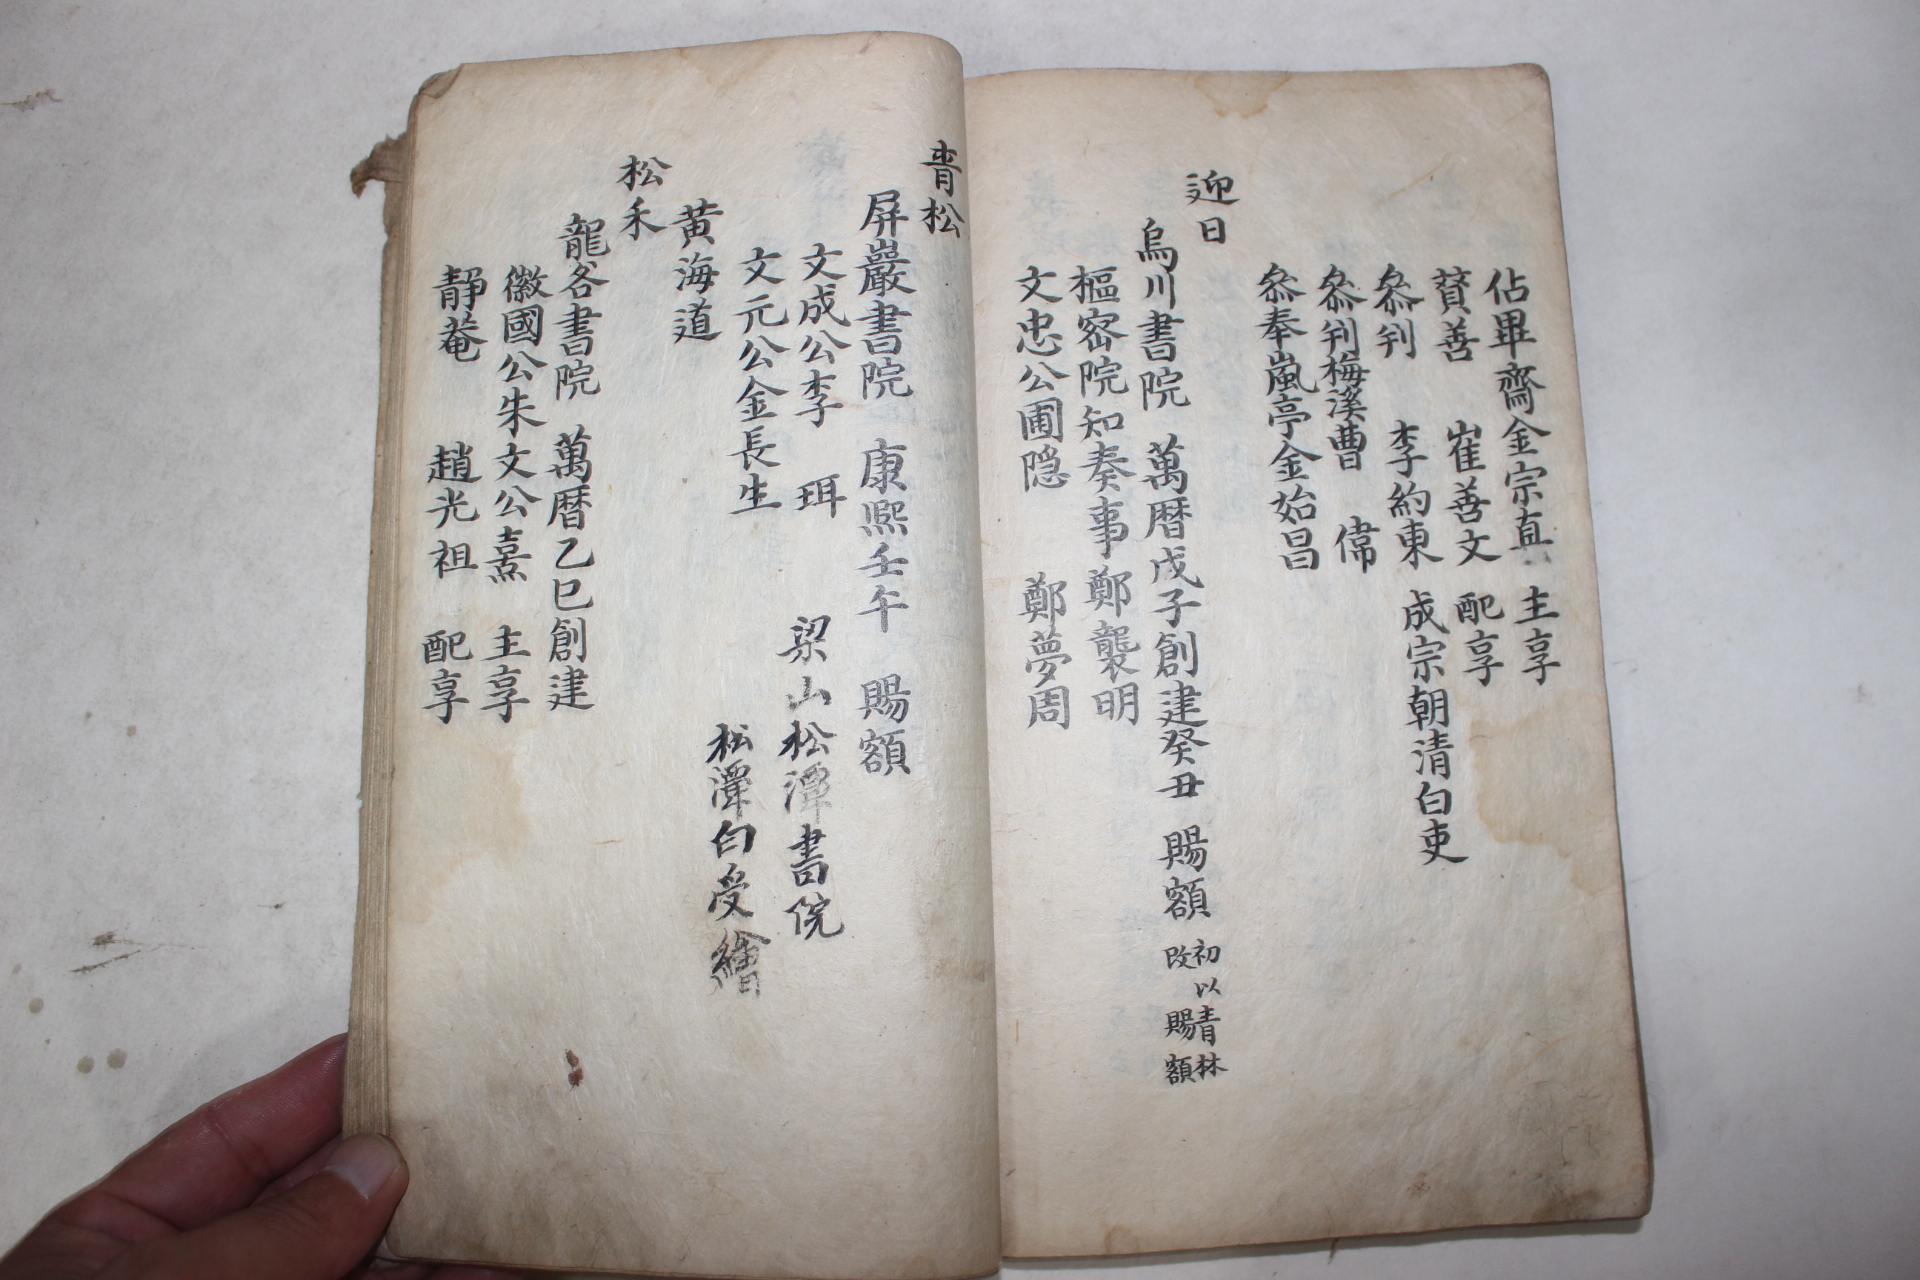 佔畢齋金宗直 主享
賛善 崔善文 配享
叅判 李約東 成宗朝清白吏
叅判梅溪曹 偉
叅奉嵐亭金始昌
迎日
烏川書院 萬曆戊子創建癸丑 賜額 初以青林
改 賜額
樞密院知奏事鄭襲明
文忠公圃隠 鄭夢周
青松
屏巖書院 康熙壬午 賜額
文成公李 珥 梁山松潭書院
文元公金長生 松潭白受繪
黄海道
松禾
龍谷書院 萬暦乙巳創建
徽國公朱文公熹 主享
靜菴 趙光祖 配享